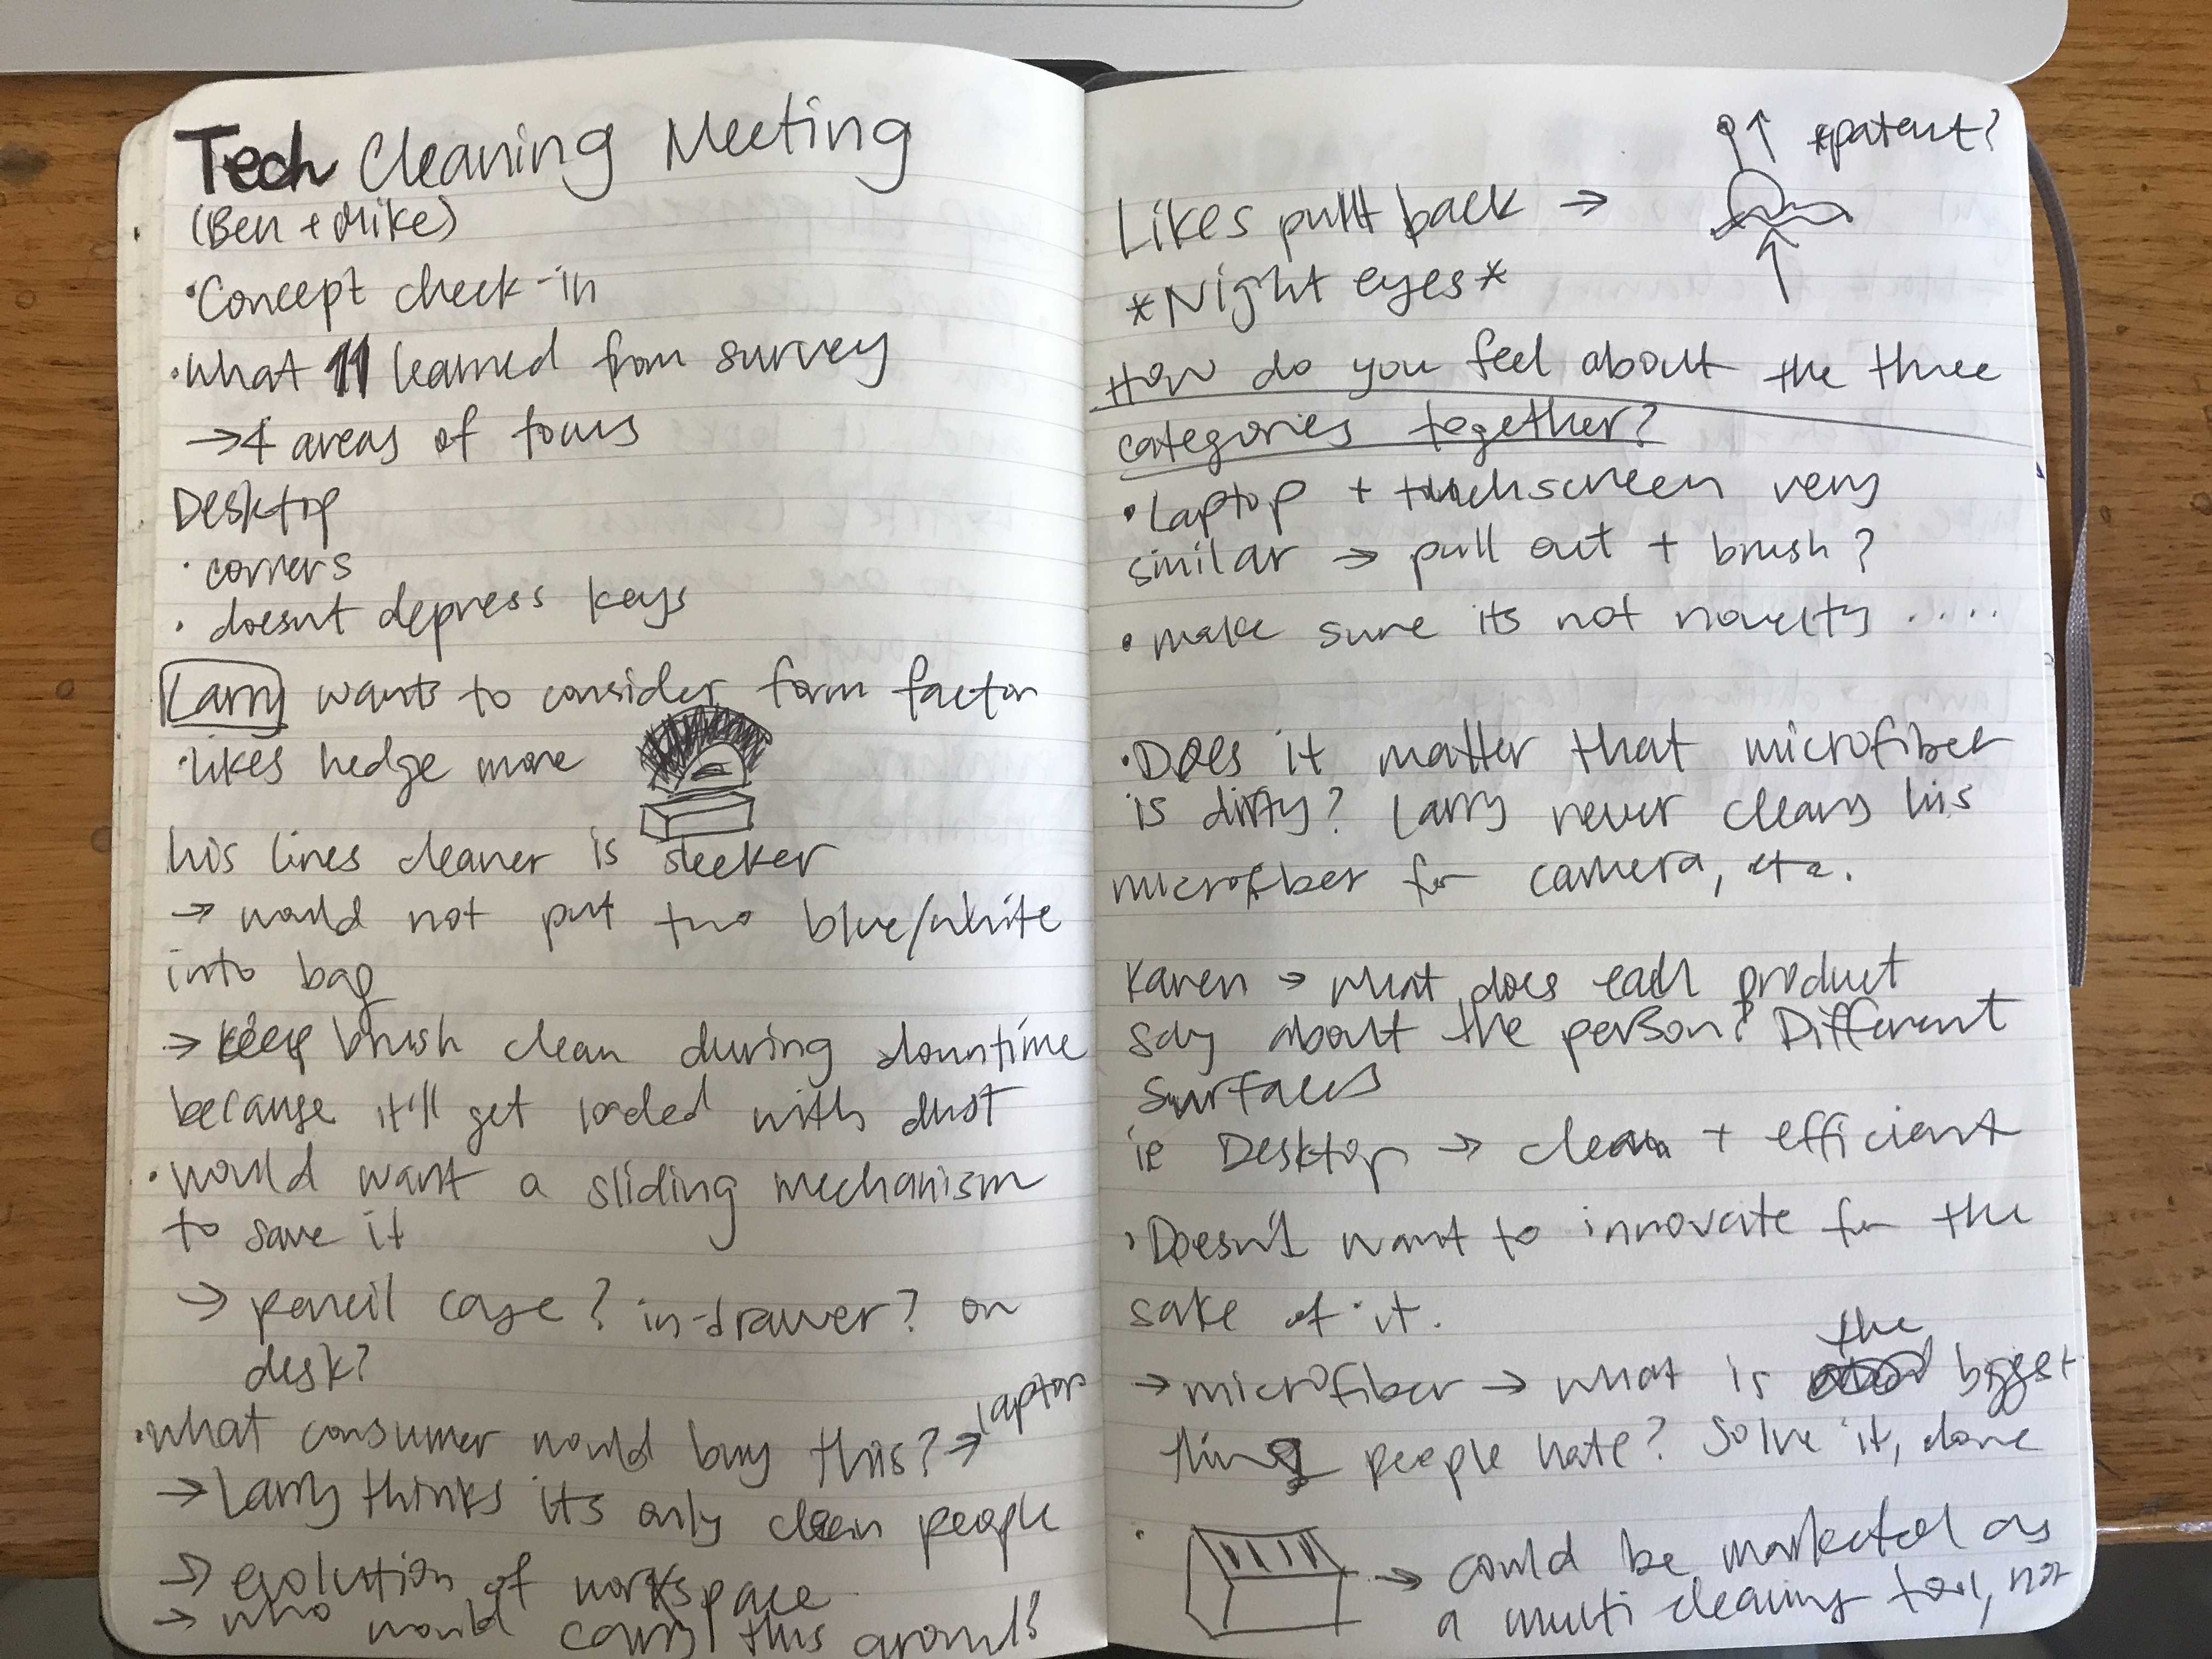 Tech Cleaning Meeting
(Ben + Mike)
• Concept check-in
• What learned from survey
→ 4 areas of focus
Desktop
• corners
• doesnt depress keys
Larry wants to consider form factor
• likes hedge more
his lines cleaner is sleeker
→ would not put two blue/white
into bag
→ keep brush clean during downtime
because it'll get loaded with dust
• Would want a sliding mechanism
to save it
→ pencil case? in-drawer? on
desk?
• What consumer would buy this? → laptop
→ larry thinks its only clean people
→ evolution of workspace
→ who would carry this around?
*patent?
Likes pull back →
*Night eyes*
How do you feel about the three
categories together?
• laptop + touchscreen very
similar → pull out + brush?
• make sure its not novelty .....
• Does it matter that microfiber
is dirty? larry never cleans his
microfiber for camera, etc.
Karen → what does each product
say about the person? Different
surfaces
ie Desktop → clean + efficient
• Doesn't want to innovate for the
sake of it.
→ microfiber → what is the biggest
thing people hate? Solve it, done
• → could be marketed as
a multi cleaning tool, not